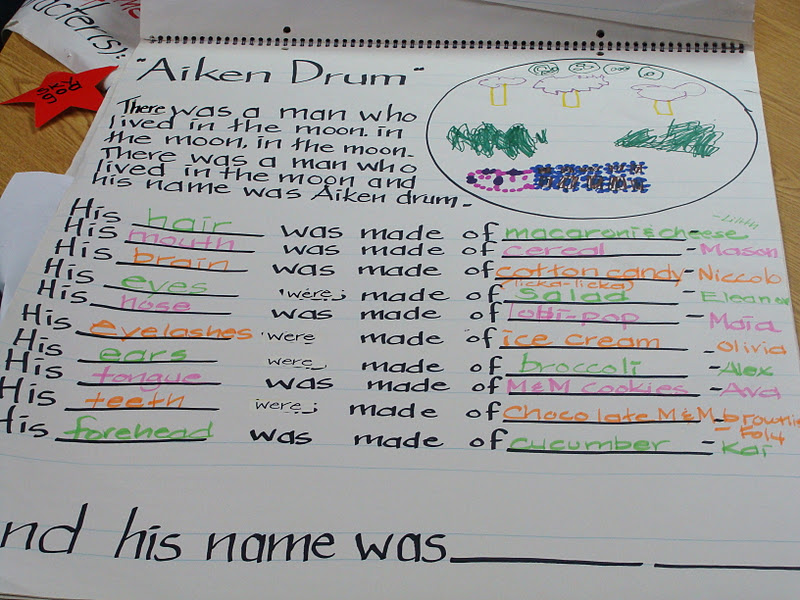 acter(s):
"Aiken Drum"
There was a man who
lived in the moon. in
the moon, in the moon.
There was a man who
lived in the moon and
his name was Aiken drum.
His hair was made of macaroni & cheese -Lilith
His mouth was made of cereal -Mason
His brain was made of cotton candy -Niccolo
His eyes were made of salad -Eleanor
(licka-licka)
His nose was made of lolli-pop -Maia
His eyelashes were made of ice cream -Olivia
His ears were made of broccoli -Alex
His tongue was made of M&M cookies -Ava
His teeth were made of Chocolate M&M brownie
-Foly
His forehead was made of cucumber -Kai
nd his name was